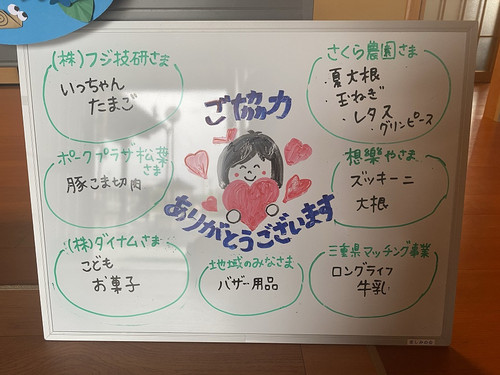 (株)フジ技研さま
いっちゃん
たまご
ポークプラザ松葉
さま
豚こま切肉
(株)ダイナムさま
こども
お菓子
ご協力
ありがとうございます
地域のみなさま
バザー用品
さくら農園さま
・夏大根
・玉ねぎ
・レタス
・グリンピース
想樂やさま
ズッキーニ
大根
三重県マッチング事業
ロングライフ
牛乳